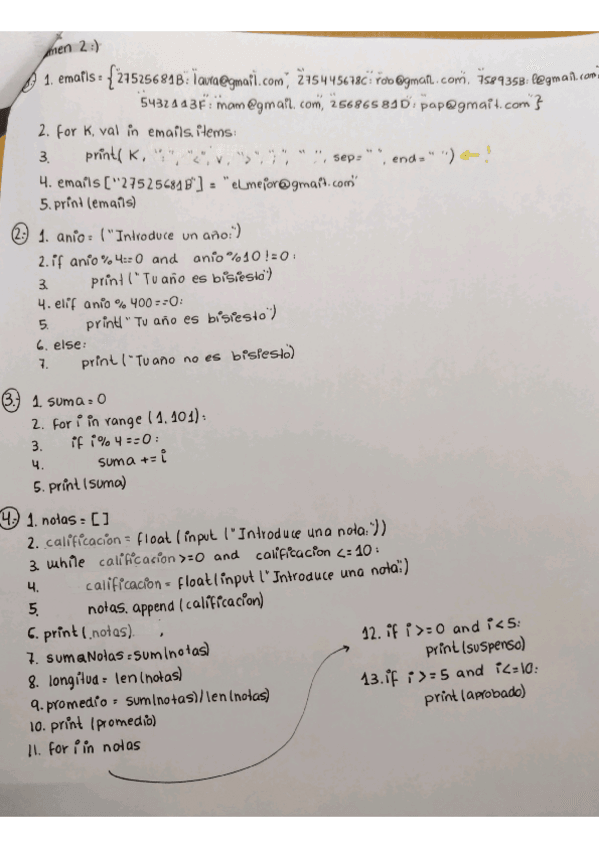 men 2:)
1. emails = {"27525681B": laura@gmail.com", "275445678C": rob@gmail.com, 7589358: @gmail.com
5432113F: mam@gmail.com, 25686581D: pap@gmail.com"}
2. for K, val in emails.items:
3. print( K, ":", "<", v, ">", ";", " ", sep=" ", end=" ") !
4. emails ["27525681B"] = "el_mejor@gmail.com"
5. print (emails)
2. 1. anio = ("Introduce un año:")
2. if anio % 4==0 and anio %10 != 0:
3. print ("Tu año es bisiesto")
4. elif anio % 400 ==0:
5. print("Tu año es bisiesto")
6. else:
7. print ("Tu ano no es bisiesto)
3. 1. suma = 0
2. for i in range (1, 101):
3. if i % 4 == 0:
4. suma += i
5. print (suma)
4. 1. notas = [ ]
2. calificacion = float (input ("Introduce una nota:"))
3. while calificacion >=0 and calificacion <= 10:
4. calificacion = float(input ("Introduce una nota:")
5. notas. append (calificacion)
6. print (.notas).
7. sumaNotas = sum(notas)
8. longitud = len (notas)
9. promedio = sum(notas)/len(notas)
10. print (promedio)
11. for i in notas
12. if i >= 0 and i < 5:
print (suspenso)
13. if i >= 5 and i <= 10:
print (aprobado)